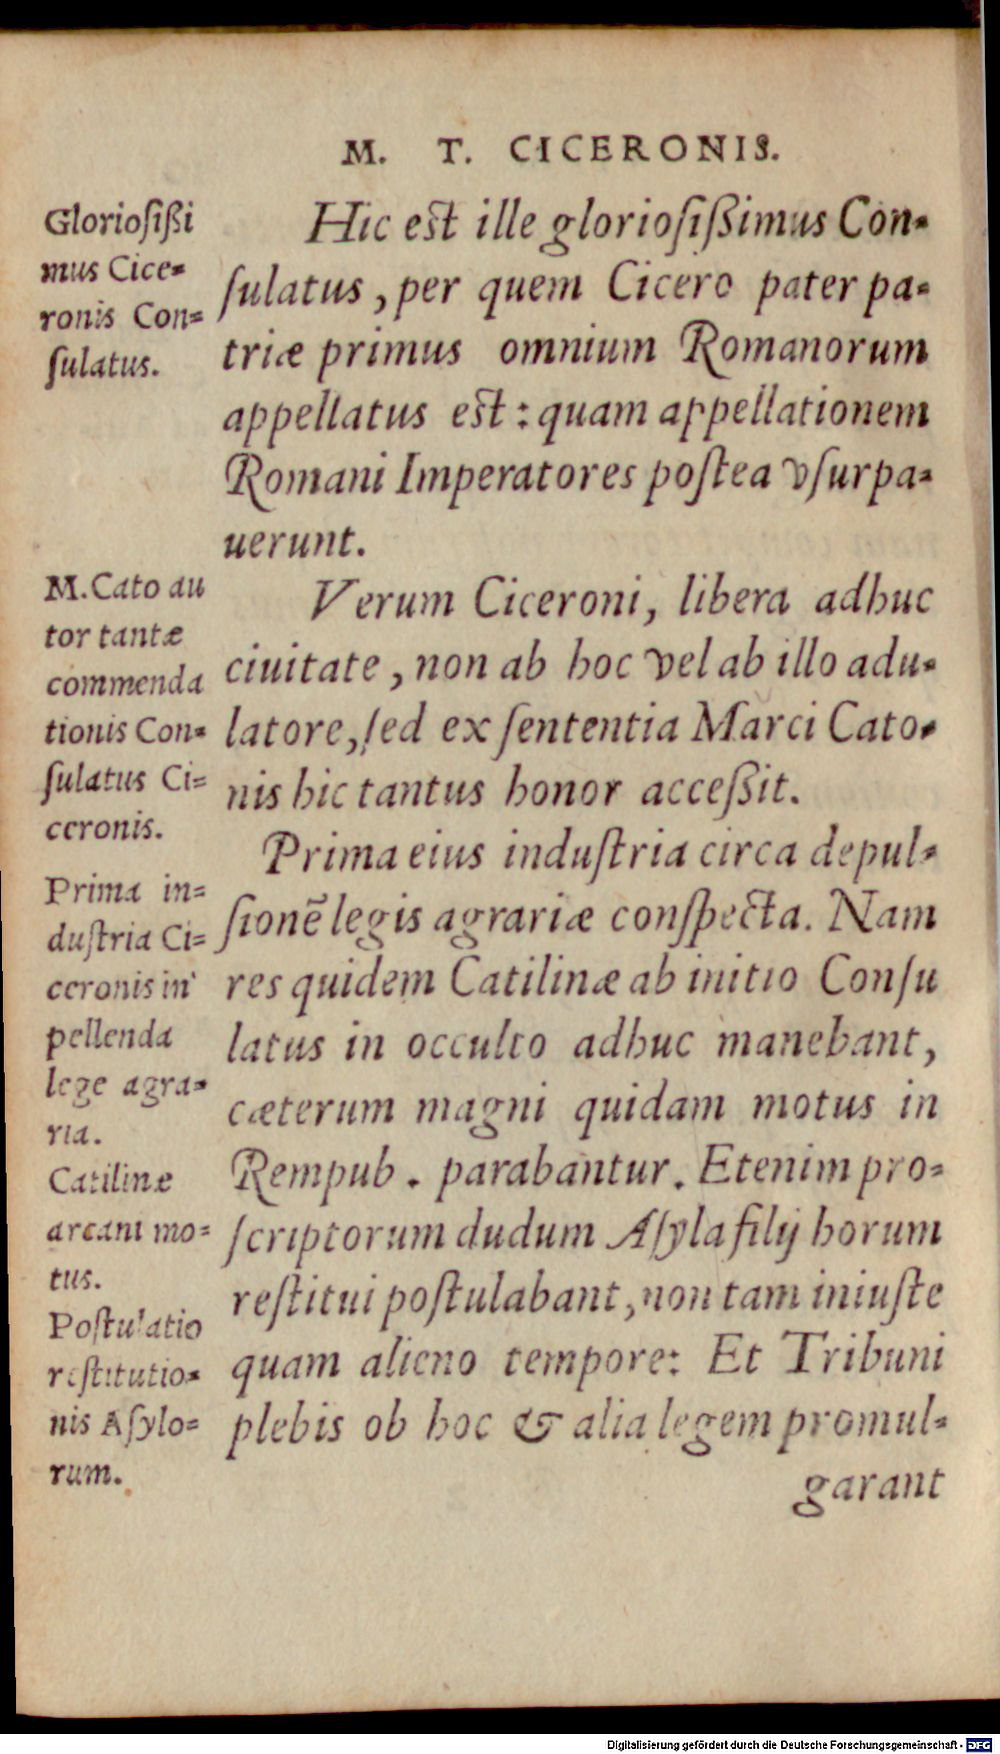 M. T. CICERONIS.
Glorioſißi
mus Cice-
ronis Con-
ſulatus.
Hic est ille glorioſißimus Con-
ſulatus, per quem Cicero pater pa-
triæ primus omnium Romanorum
appellatus est: quam appellationem
Romani Imperatores poſtea vſurpa-
uerunt.
M. Cato au
tor tantæ
commenda
tionis Con-
ſulatus Ci-
ceronis.
Verum Ciceroni, libera adhuc
ciuitate, non ab hoc vel ab illo adu-
latore, ſed ex ſententia Marci Cato-
nis hic tantus honor acceßit.
Prima in-
duſtria Ci-
ceronis in
pellenda
lege agra-
ria.
Catilinæ
arcani mo-
tus.
Poſtulatio
reſtitutio-
nis Aſylo-
rum.
Prima eius induſtria circa depul-
ſionē legis agrariæ conſpecta. Nam
res quidem Catilinæ ab initio Conſu
latus in occulto adhuc manebant,
cæterum magni quidam motus in
Rempub. parabantur. Etenim pro-
ſcriptorum dudum Aſyla filij horum
reſtitui poſtulabant, non tam iniuſte
quam alieno tempore: Et Tribuni
plebis ob hoc & alia legem promul-
garant
Digitalisierung gefördert durch die Deutsche Forschungsgemeinschaft - DFG